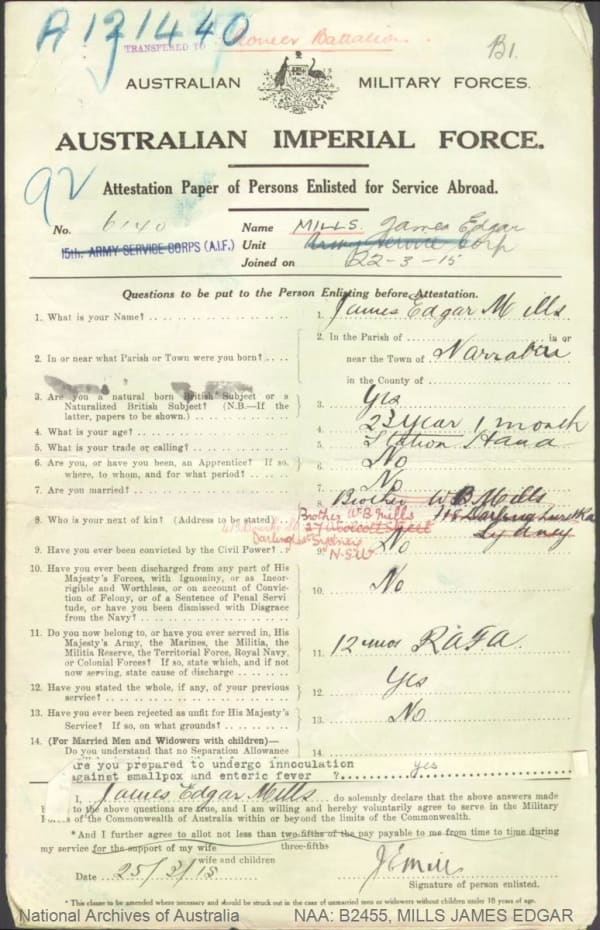 A121440
TRANSFERED TO Pioneer Battalion
B1.
AUSTRALIAN MILITARY FORCES.
AUSTRALIAN IMPERIAL FORCE.
92
Attestation Paper of Persons Enlisted for Service Abroad.
No. 6140 Name MILLS. James Edgar
15th. ARMY SERVICE CORPS (A.I.F.) Unit Army Service Corp
Joined on 22-3-15
Questions to be put to the Person Enlisting before Attestation.
1. What is your Name? 1. James Edgar Mills
2. In or near what Parish or Town were you born? 2. In the Parish of in or
near the Town of Narrabri
in the County of
3. Are you a natural born British Subject or a
Naturalized British Subject? (N.B.—If the
latter, papers to be shown.) 3. Yes
4. What is your age? 4. 23 Year 1 month
5. What is your trade or calling? 5. Station Hand
6. Are you, or have you been, an Apprentice? If so,
where, to whom, and for what period? 6. No
7. Are you married? 7. No
8. Who is your next of kin? (Address to be stated) 8. Brother W B Mills
118 Darlinghurst Rd
Sydney
Brother W B Mills
27 Woolcott Street
Darlinghurst Sydney
N.S.W
9. Have you ever been convicted by the Civil Power? 9. No
10. Have you ever been discharged from any part of His
Majesty's Forces, with Ignominy, or as Incor-
rigible and Worthless, or on account of Convic-
tion of Felony, or of a Sentence of Penal Servi-
tude, or have you been dismissed with Disgrace
from the Navy? 10. No
11. Do you now belong to, or have you ever served in, His
Majesty's Army, the Marines, the Militia, the
Militia Reserve, the Territorial Force, Royal Navy,
or Colonial Forces? If so, state which, and if not
now serving, state cause of discharge 11. 12 mos RAGA
12. Have you stated the whole, if any, of your previous
service? 12. Yes
13. Have you ever been rejected as unfit for His Majesty's
Service? If so, on what grounds? 13. No
14. (For Married Men and Widowers with children)—
Do you understand that no Separation Allowance 14.
Are you prepared to undergo innoculation
against smallpox and enteric fever ? yes
I, James Edgar Mills do solemnly declare that the above answers made
to the above questions are true, and I am willing and hereby voluntarily agree to serve in the Military
of the Commonwealth of Australia within or beyond the limits of the Commonwealth.
*And I further agree to allot not less than two-fifths of the pay payable to me from time to time during
three-fifths
my service for the support of my wife
wife and children
Date 25/3/15 J E Mills
Signature of person enlisted.
* This clause to be amended where necessary and should be struck out in the case of unmarried men or widowers without children under 18 years of age.
National Archives of Australia NAA: B2455, MILLS JAMES EDGAR